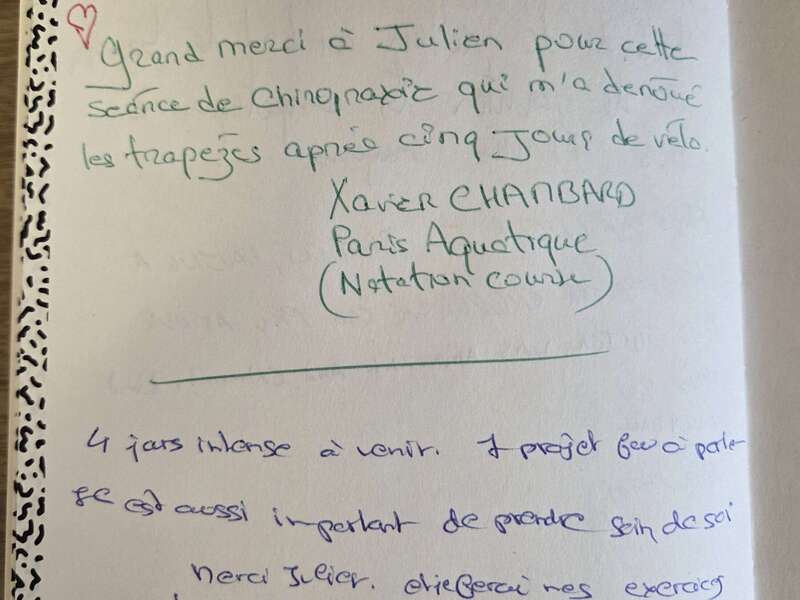 Grand merci à Julien pour cette
séance de Chiropraxie qui m'a dénoué
les trapèzes après cinq jours de vélo.
Xavier CHAMBARD
Paris Aquatique
(Natation course)
4 jours intense à venir. 1 projet
est aussi important de prendre soin de soi
Merci Julien. exercices